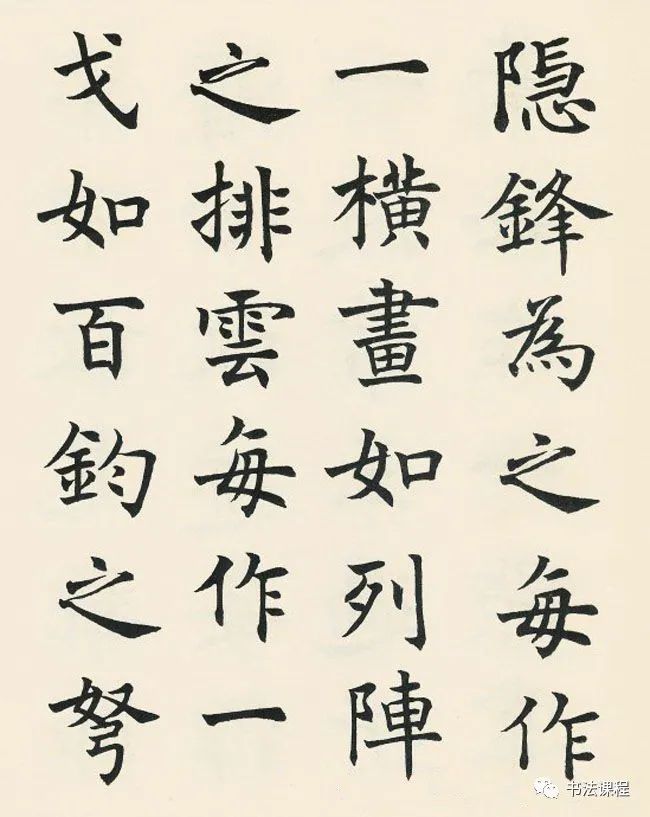 隐鋒為之每作
一橫畫如列陣
之排雲每作一
戈如百鈞之弩
书法课程